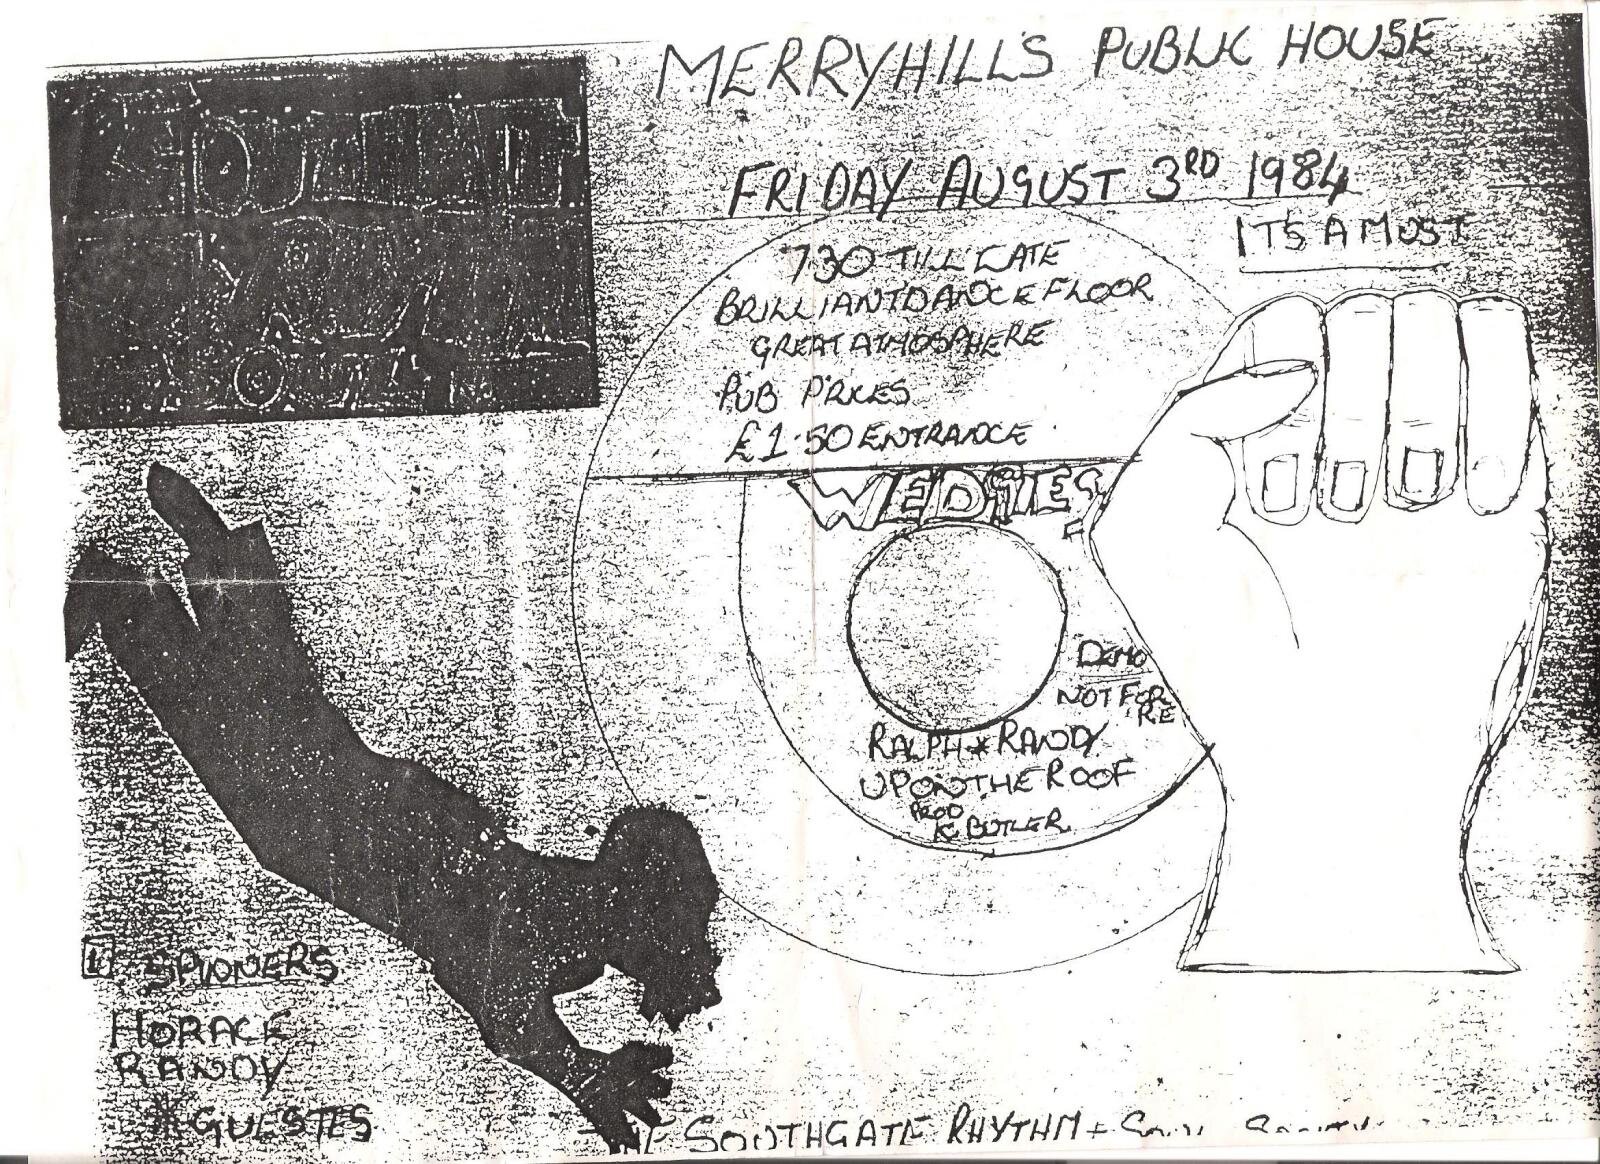 MERRYHILLS PUBLIC HOUSE
FRIDAY AUGUST 3RD 1984
ITS A MUST
730 TILL LATE
BRILLIANT DANCE FLOOR
GREAT ATMOSPHERE
PUB PRICES
£1.50 ENTRANCE
WEDGIES
DEMO
NOT FOR
RE
RALPH * RANDY
UP ON THE ROOF
PROD
K BUTLER
SPINNERS
HORACE
RANDY
* GUESTES
THE SOUTHGATE RHYTHM +